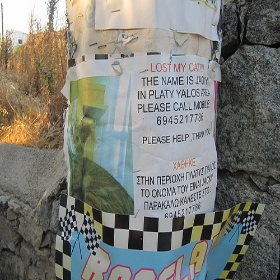 LOST MY CAT!!!
THE NAME IS JADY
IN PLATY YALOS AREA
PLEASE CALL MOBILE
6945217786
PLEASE HELP, THANK YOU
ΧΑΘΗΚΕ
ΣΤΗΝ ΠΕΡΙΟΧΗ ΠΛΑΤΥΣ ΓΙΑΛΟΣ
ΤΟ ΟΝΟΜΑ ΤΟΥ ΕΙΝΑΙ
ΠΑΡΑΚΑΛΩ ΚΑΛΕΣΤΕ ΣΤΟ
6945217786